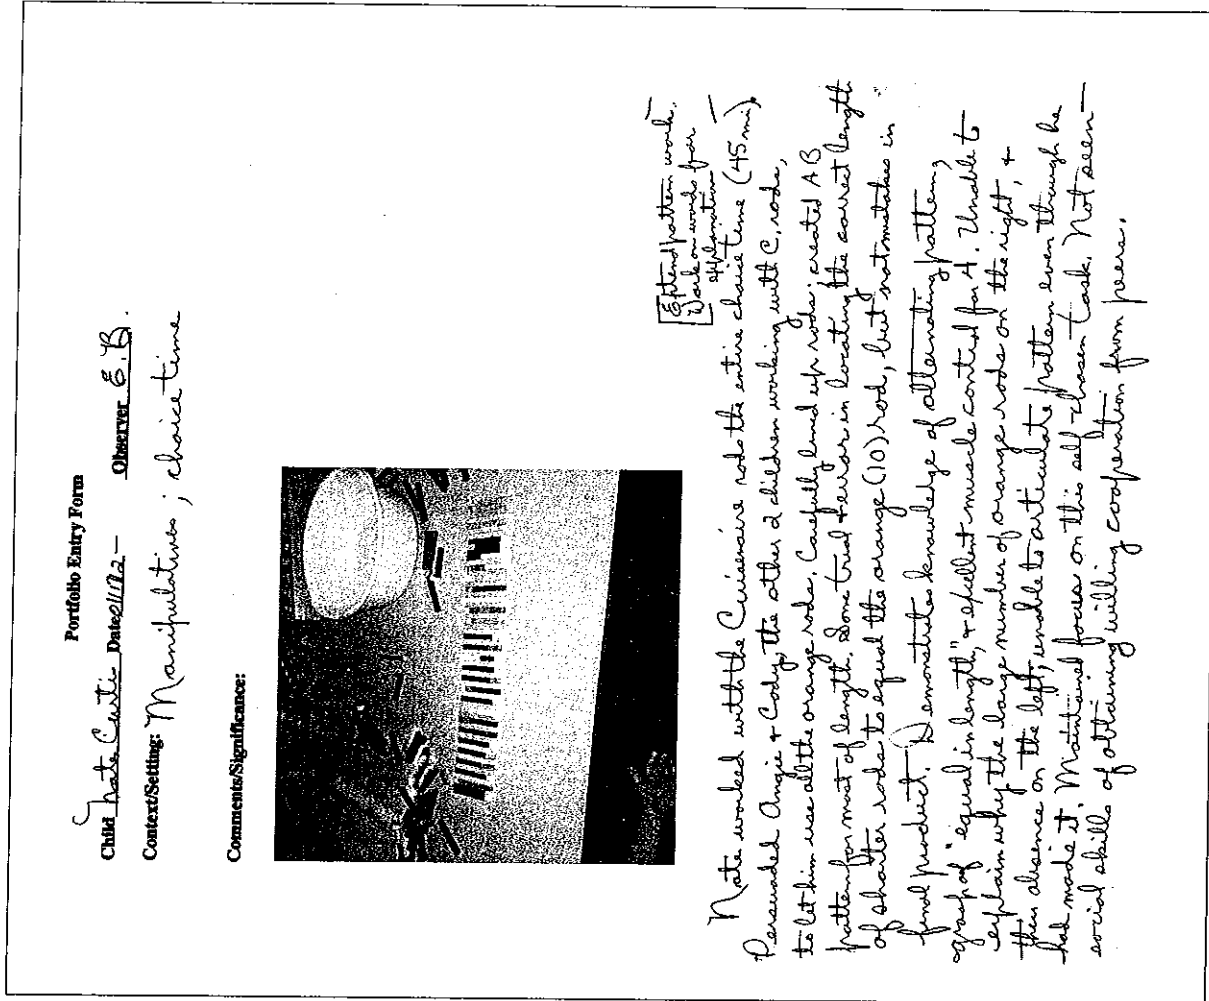 Portfolio Entry Form
Child Nate Curtis Date Observer E.B.
Context/Setting: Manipulatives; choice time
Comments/Significance:
Extend pattern work.
Work on words for
explanation
Nate worked with the Cuisenaire rods the entire choice time (45 min).
Persuaded Angie & Cody, the other 2 children working with C. rods,
to let him use all the orange rods. Carefully lined up rods; created AB
pattern for most of length. Some trial & error in locating the correct length
of shorter rods to equal the orange (10) rod, but not mistakes in
final product. Demonstrates knowledge of alternating pattern,
grasp of "equal in length," & excellent muscle control for 4. Unable to
explain why the large number of orange rods on the right, &
their absence on the left; unable to articulate pattern even though he
had made it. Maintained focus on this self-chosen task. Not seen—
social skills of obtaining willing cooperation from peers.